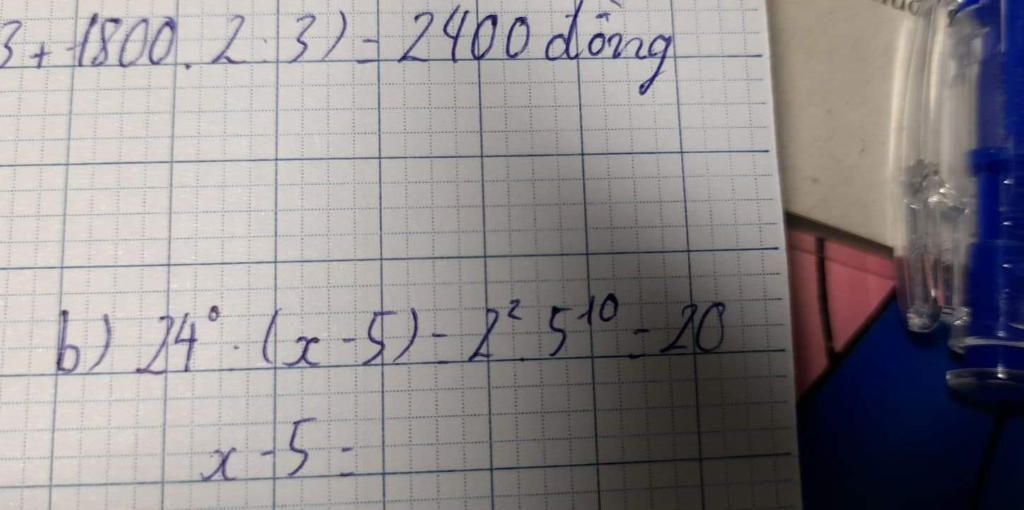 3 + 1800 . 2 : 3) = 2400 đồng
b) 24⁰ . (x - 5) = 2² . 5¹⁰ = 20
x - 5 =